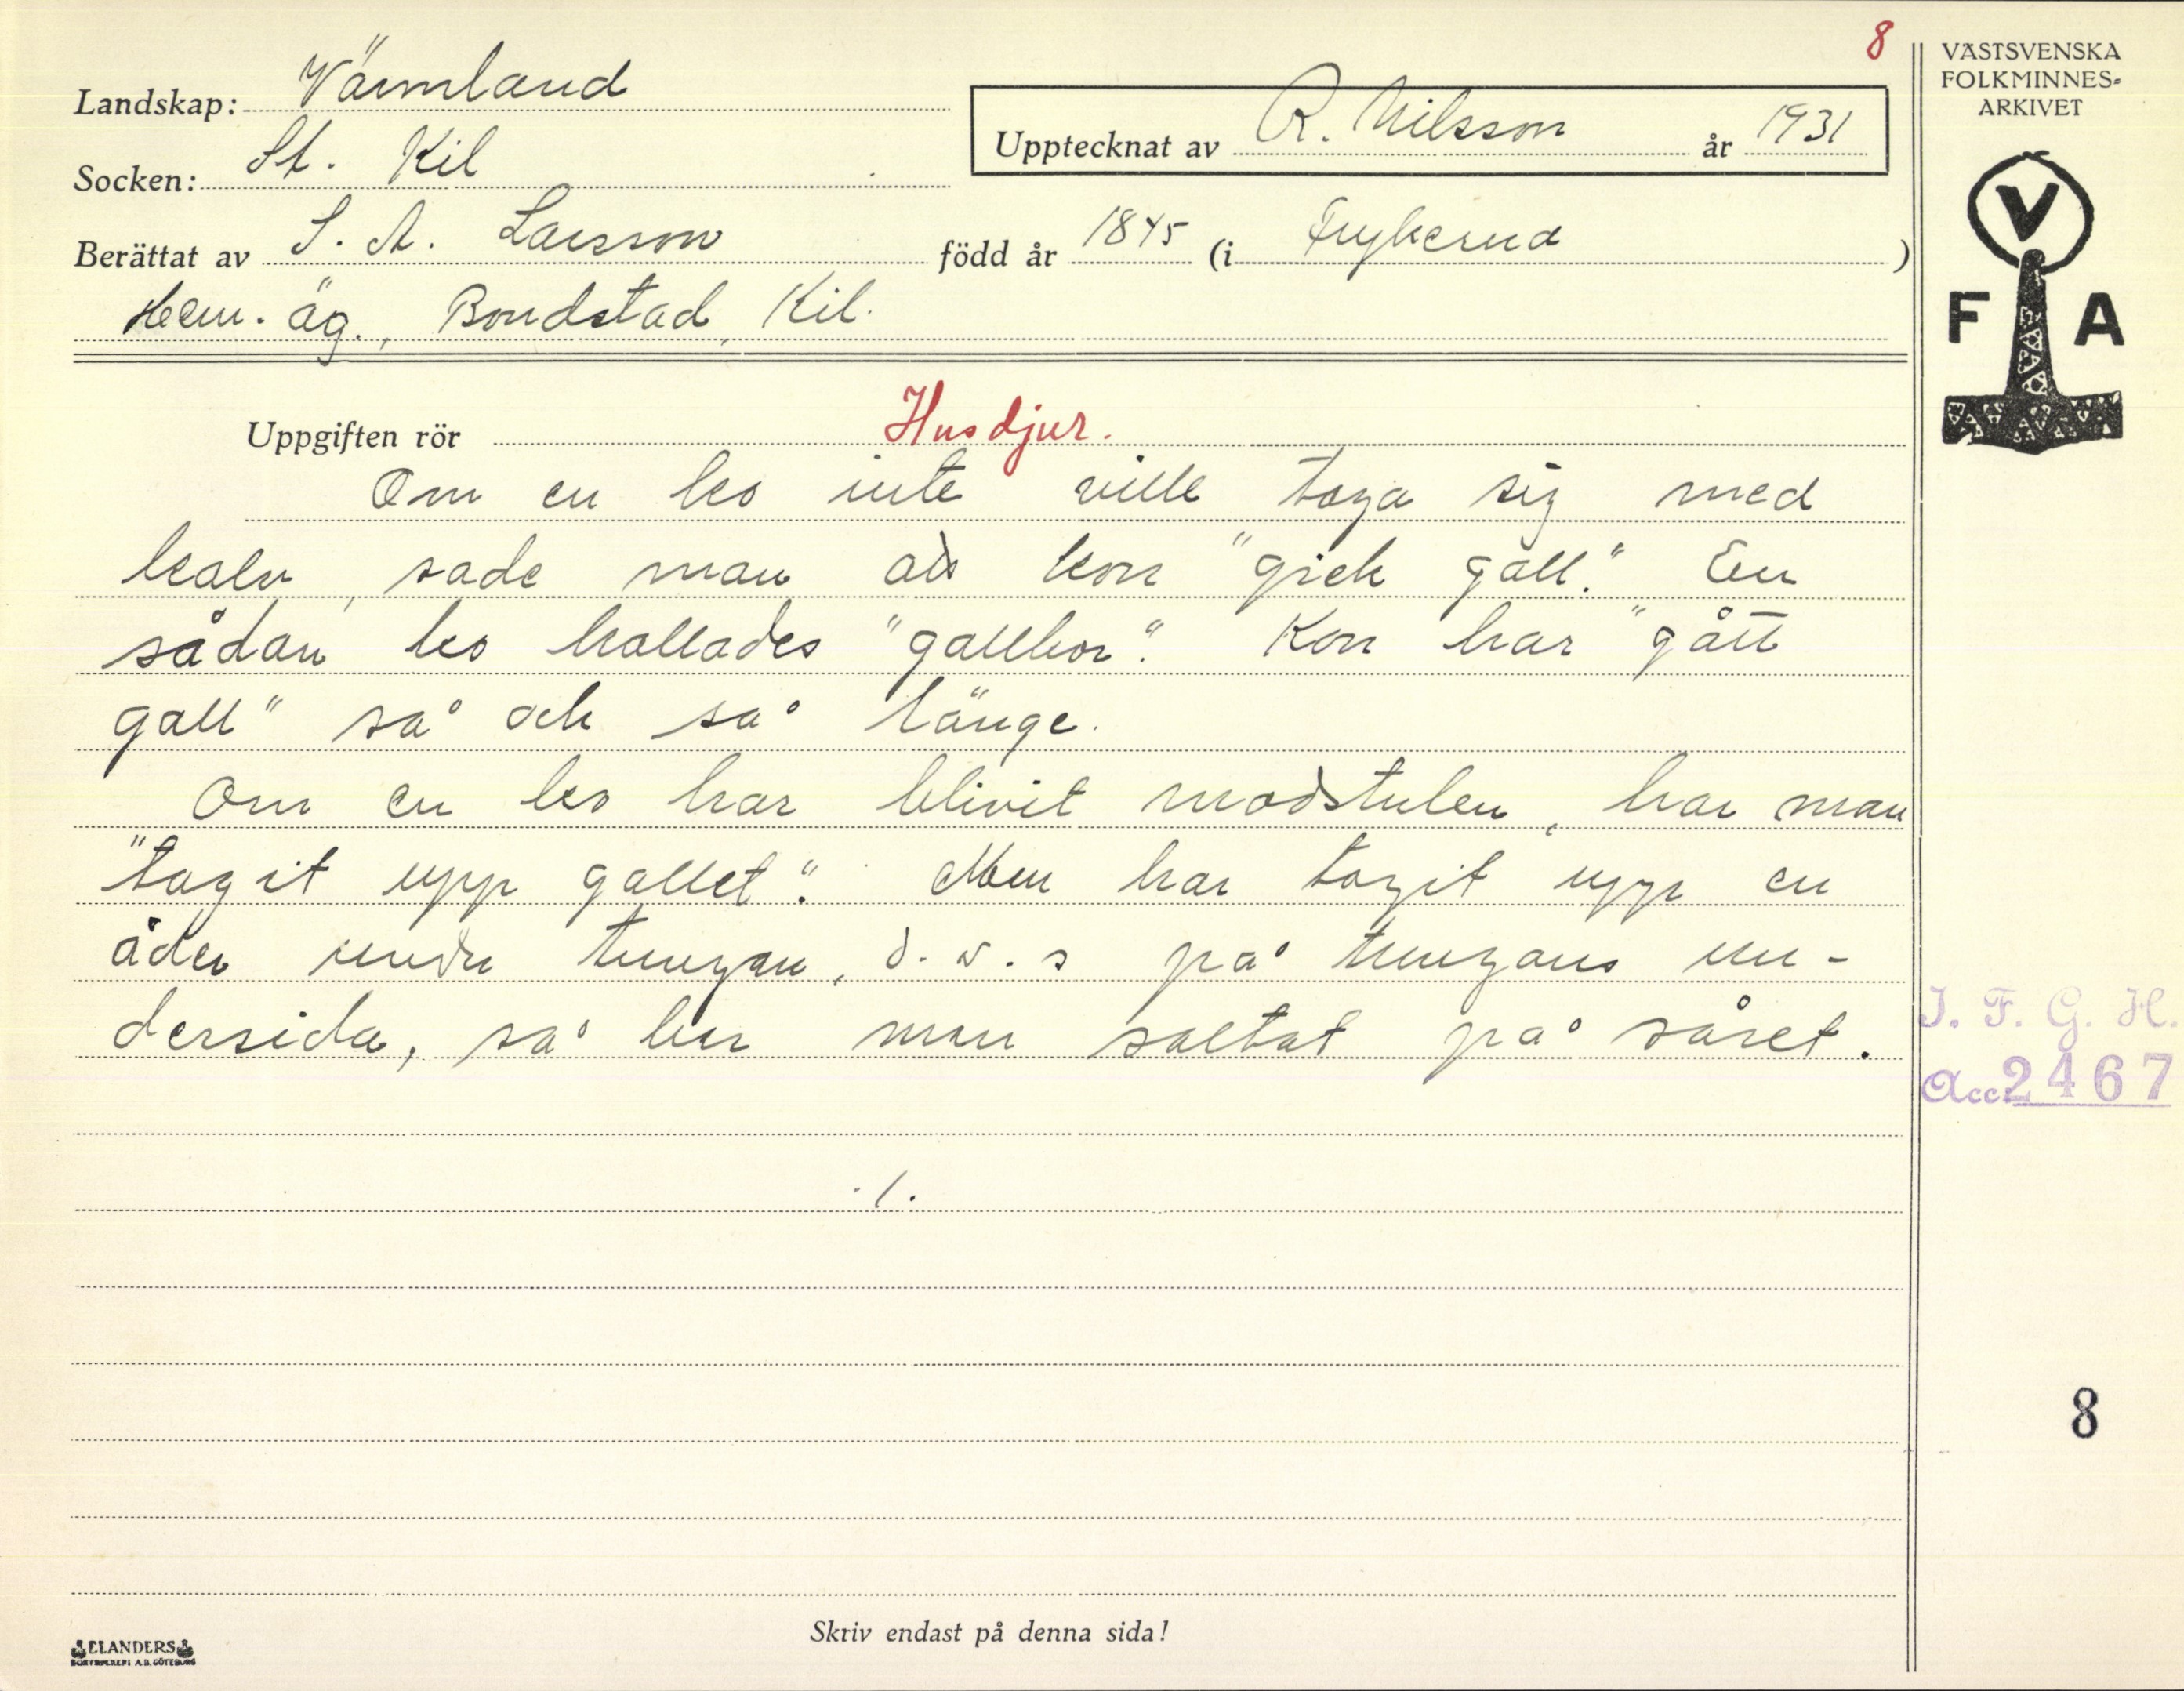 8
VÄSTSVENSKA
FOLKMINNES-
ARKIVET
Landskap: Värmland
Upptecknat av R. Nilsson år 1931
Socken: St. Kil
Berättat av S. A. Larsson född år 1845 (i Frykerud)
Hem. äg., Bondstad, Kil.
V
F A
Uppgiften rör Husdjur.
Om en ko inte ville taga sig med
kalv, sade man att kon "gick gall." En
sådan ko kallades "gallkor". Kon har "gått
gall" så och så länge.
Om en ko har blivit modstulen, har man
"tagit upp gallet". Men har tagit upp en
åder under tungan, d.v.s på tungans un-
dersida, så har man saltat på såret.
I. F. G. H.
Acc. 2467
./.
8
Skriv endast på denna sida!
ELANDERS
BOKTRYCKERI A.B. GÖTEBORG